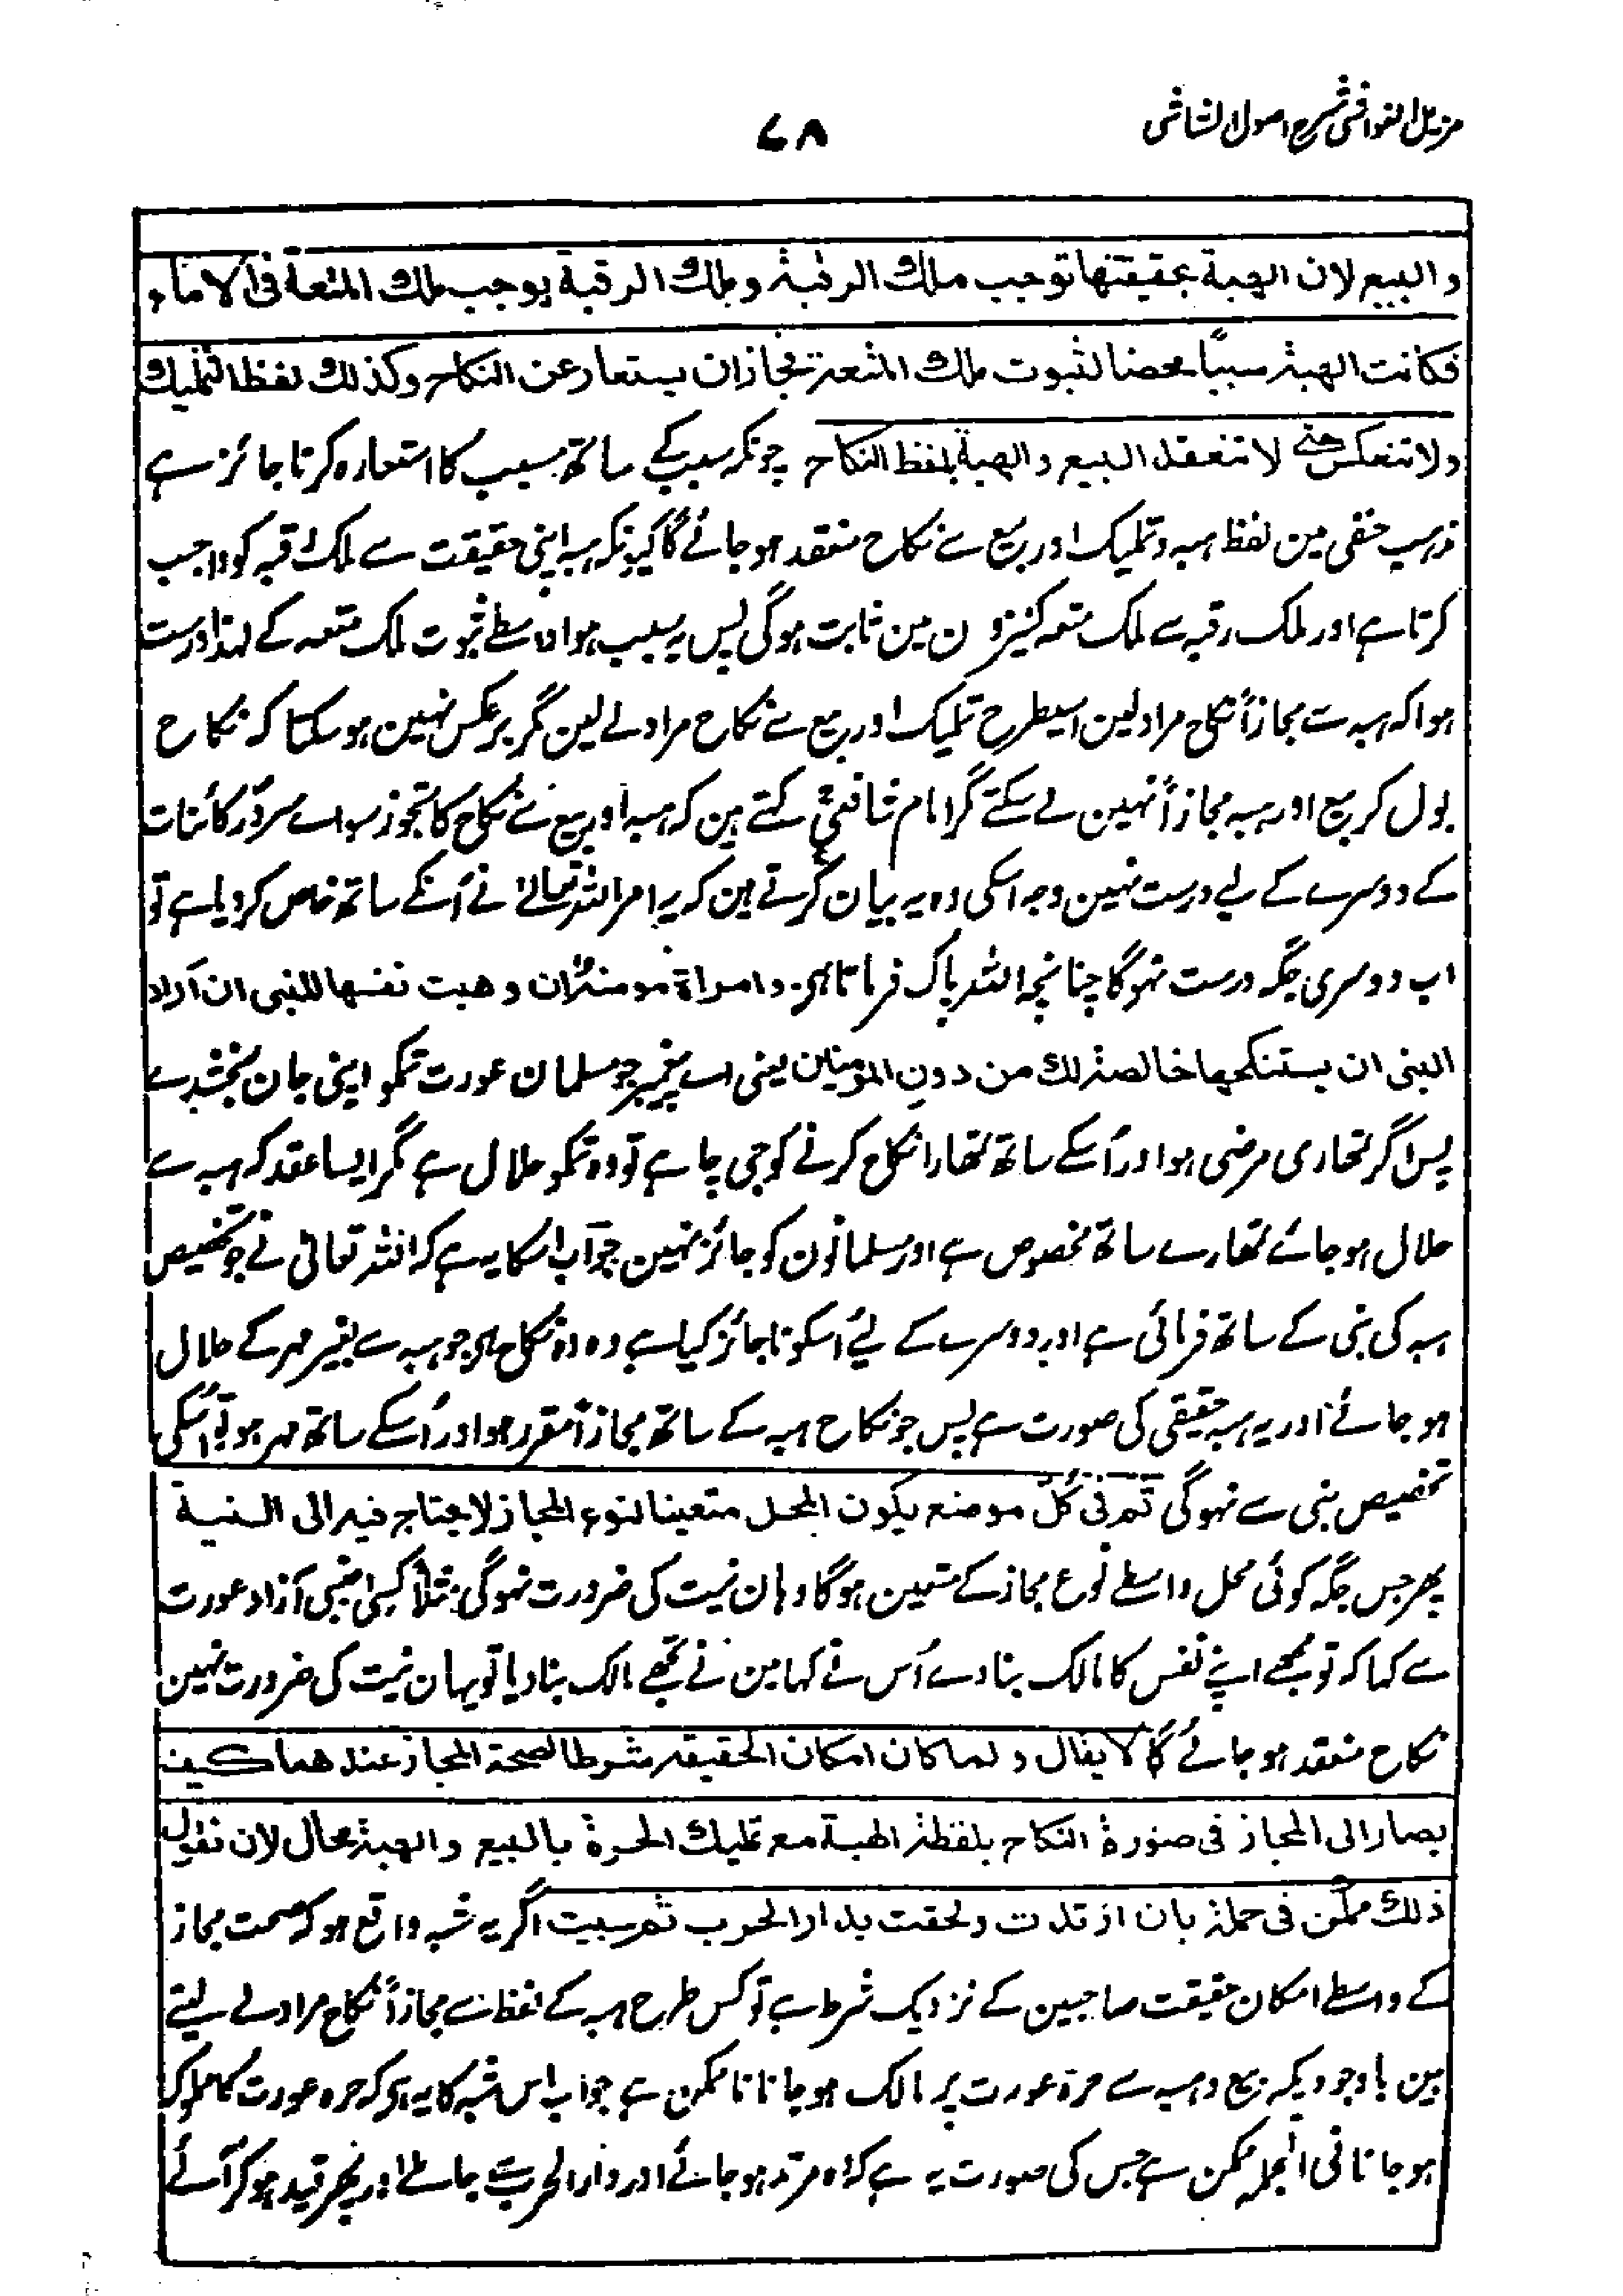 مزیل الغواشی شرح اصول الشاشی
۷۸
والبیع لان الهبة بحقیقتها توجب ملك الرقبة وملك الرقبة یوجب ملك المتعة فی الاماء
فکانت الهبة سببًا محضا لثبوت ملك المتعة فجاز ان یستعار عن النکاح وکذلك لفظ التملیك
ولا تنعکس حتی لا تنعقد البیع والهبة بلفظ النکاح چونکہ سبب کے ساتھ مسبب کا استعارہ کرنا جائز ہے
مذہب حنفی مین لفظ ہبہ وتملیک اور بیع سے نکاح منعقد ہو جائے گا کیونکہ ہبہ اپنی حقیقت سے ملک رقبہ کو واجب
کرتا ہے اور ملک رقبہ سے ملک متعہ کنیزون مین ثابت ہوگی پس یہ سبب ہوا واسطے ثبوت ملک متعہ کے لہذا درست
ہوا کہ ہبہ سے مجازاً نکاح مراد لین اسیطرح تملیک اور بیع سے نکاح مراد لے لین مگر برعکس نہین ہو سکتا کہ نکاح
بول کر بیع اور ہبہ مجازاً نہین لے سکتے مگر امام شافعیؒ کہتے ہین کہ ہبہ اور بیع سے نکاح کا تجوز سواے سرور کائنات
کے دوسرے کے لیے درست نہین وجہ اسکی وہ یہ بیان کرتے ہین کہ یہ امر اللہ تعالےٰ نے اُنکے ساتھ خاص کر دیا ہے تو
اب دوسری جگہ درست نہوگا چنانچہ اللہ پاک فرماتا ہی۔ وامراة مومنة ان وهبت نفسها للنبی ان اراد
النبی ان یستنکحها خالصة لك من دون المؤمنین یعنی اے پیغمبر جو مسلمان عورت تمکو اپنی جان بخشدے
پس اگر تمھاری مرضی ہو اور اُسکے ساتھ تمھارا نکاح کرنے کو جی چاہے تو وہ تمکو حلال ہے مگر ایسا عقد کہ ہبہ سے
حلال ہو جائے تمھارے ساتھ مخصوص ہے اور مسلمانون کو جائز نہین جواب اسکا یہ ہے کہ اللہ تعالیٰ نے جو تخصیص
ہبہ کی نبی کے ساتھ فرمائی ہے اور دوسرے کے لیے اُسکو ناجائز کیا ہے وہ وہ نکاح ہی جو ہبہ سے بغیر مہر کے حلال
ہو جائے اور یہ ہبہ حقیقی کی صورت ہے پس جو نکاح ہبہ کے ساتھ مجازاً مقرر ہوا اور اُسکے ساتھ مہر ہو تو اُسکی
تخصیص نبی سے نہوگی ثم فی کل موضع یکون المحل متعینا لنوع المجاز لا یحتاج فیه الی النیة
پھر جس جگہ کوئی محل واسطے نوع مجاز کے متعین ہوگا وہان نیت کی ضرورت نہوگی مثلاً کسی اجنبی آزاد عورت
سے کہا کہ تو مجھے اپنے نفس کا مالک بنا دے اُس نے کہا مین نے تجھے مالک بنا دیا تو یہان نیت کی ضرورت نہین
نکاح منعقد ہو جائے گا لا یقال ولما کان امکان الحقیقة شرطا لصحة المجاز عندهما کیف
یصار الی المجاز فی صورة النکاح بلفظة الهبة مع تملیك الحرة بالبیع والهبة محال لان نقول
ذلك ممکن فی جملة بان ارتدت ولحقت بدار الحرب ثم سبیت اگر یہ شبہ واقع ہو کہ صحت مجاز
کے واسطے امکان حقیقت صاحبین کے نزدیک شرط ہے تو کس طرح ہبہ کے لفظ سے مجازاً نکاح مراد لے لیتے
ہین باوجودیکہ بیع وہبہ سے حرۃ عورت پر مالک ہو جانا ناممکن ہے جواب اس شبہ کا یہ ہی کہ حرہ عورت کا مملوک
ہو جانا فی الجملہ ممکن ہے جس کی صورت یہ ہے کہ وہ مرتد ہو جائے اور دار الحرب مین جاملے اور پھر قید ہو کر آئے